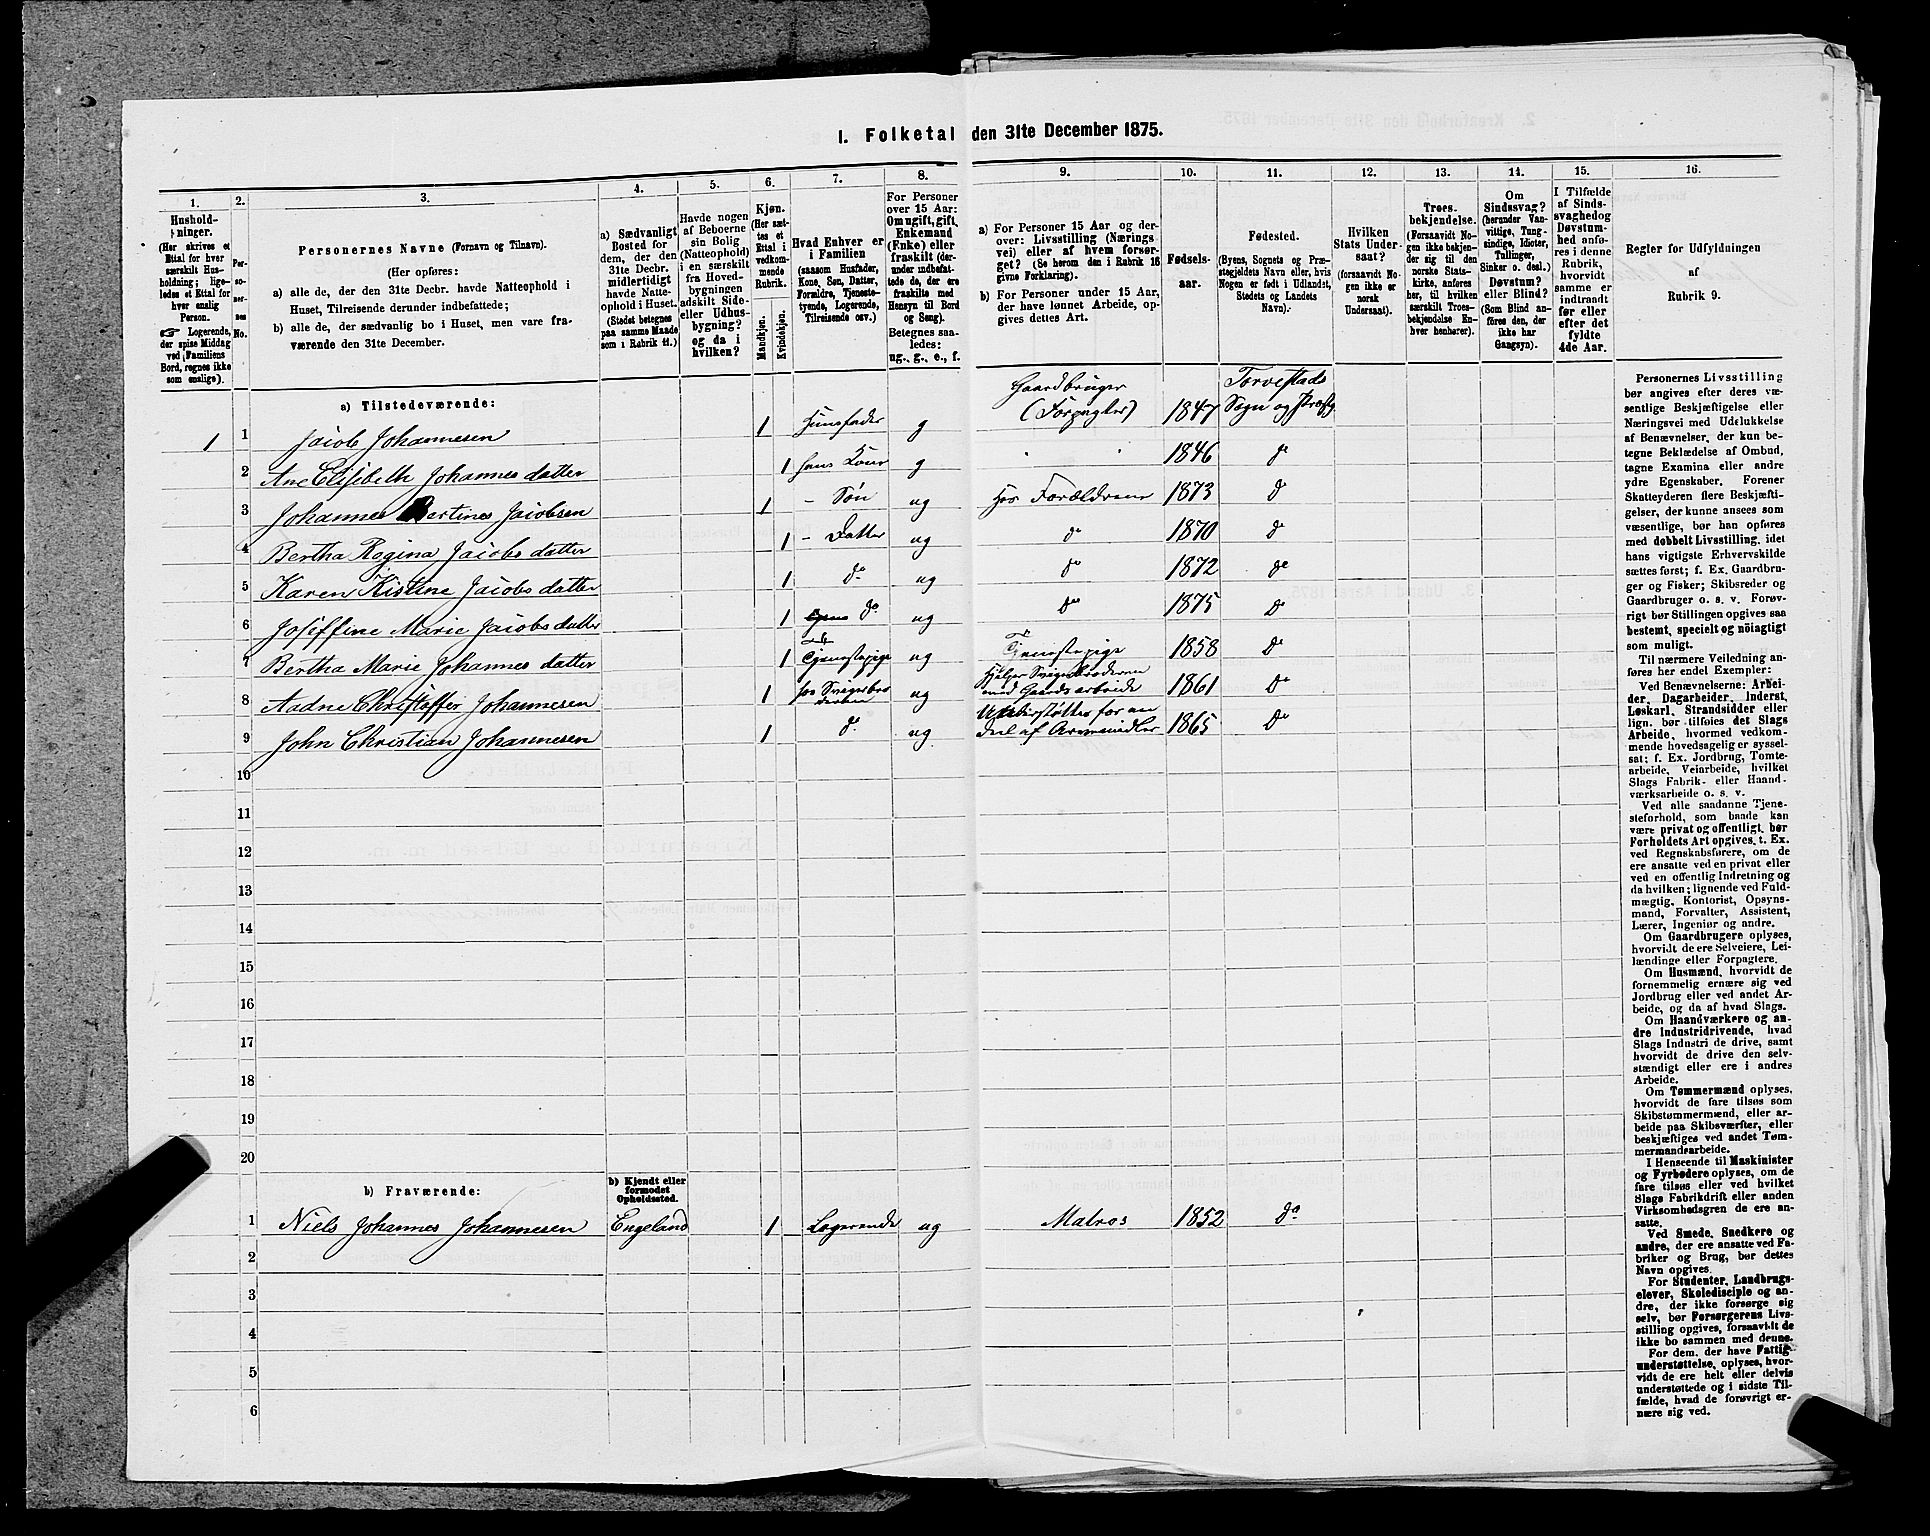 1. Folketal den 31te December 1875.
1. 2. 3. 4. 5. 6. 7. 8. 9. 10. 11. 12. 13. 14. 15. 16.
Personernes Navne (Fornavn og Tilnavn).
(Her opføres:
a) alle de, der den 31te Decbr. havde Natteophold i
Huset, Tilreisende derunder indbefattede;
b) alle de, der sædvanlig bo i Huset, men vare fra-
værende den 31te December.
a) Sædvanligt
Bosted for
dem, der den
31te Decbr.
midlertidigt
havde Natte-
ophold i Huset.
(Stedet betegnes
paa samme Maade
som i Rubrik 11.)
Havde nogen
af Beboerne
sin Bolig
(Natteophold)
i en særskilt
fra Hoved-
bygningen
adskilt Side-
eller Udhus-
bygning?
og da i
hvilken?
Kjøn.
(Her sæt-
tes et
Ettal i
vedkom-
mende
Rubrik.
Mandkjøn.
Kvindekjøn.
Hvad Enhver er
i Familien
(saasom Husfader,
Kone, Søn, Datter,
Forældre, Tjeneste-
tyende, Logerende,
Tilreisende osv.)
For Personer
over 15 Aar:
Om ugift, gift,
Enkemand
(Enke) eller
fraskilt (der-
under indbefat-
tede de, der ere
fraskilte med
Hensyn til Bord
og Seng).
Betegnes saa-
ledes:
ug., g., e., f.
a) For Personer 15 Aar og der-
over: Livsstilling (Nærings-
vei) eller af hvem forsør-
get? (Se herom den i Rubrik 16
givne Forklaring).
b) For Personer under 15 Aar,
der have lønnet Arbeide, op-
gives dettes Art.
Fødsels-
aar.
Fødested.
(Byens, Sognets og Præ-
stegjeldets Navn eller, hvis
Nogen er født i Udlandet,
Stedets og Landets
Navn).
Hvilken
Stats Under-
saat?
(forsaavidt No-
gen ikke er
norsk
Undersaat).
Troes-
bekjendelse.
(Forsaavidt No-
gen ikke bekjen-
der sig til den
norske Stats-
kirke, anføres
her, til hvilken
særskilt Troes-
bekjendelse En-
hver henhører).
Om
Sindssvag?
(herunder Van-
vittige, Tung-
sindige, Idioter,
Tullinger,
Sinker o. desl.)
Døvstum?
eller Blind?
(Som Blind an-
føres den, der
ikke har
Gangsyn).
I Tilfælde
af Sinds-
svaghed og
Døvstum-
hed anfø-
res i denne
Rubrik,
hvorvidt
samme er
indtraadt
før eller
efter det
fyldte
4de Aar.
Regler for Udfyldningen
af
Rubrik 9.
Hushold-
ninger.
(Her skrives et
Ettal for hver
særskilt Hus-
holdning; lige-
ledes et Ettal for
hver enslig
Person.
☞ Logerende,
der spise Middag
ved Familiens
Bord, regnes ikke
som enslige).
Per-
so-
ner-
nes
No.
a) Tilstedeværende:
1 1 Jacob Johannesen 1 Huusfader g Gaardbruger (Forpagter) 1847 Torvestads Sogn og Præstg.
2 Ane Elisebeth Johannes datter 1 hans Kone g 1846 do
3 Johannes Bertines Jacobsen 1 - Søn ug Hos Forældrene 1873 do
4 Bertha Regina Jacobs datter 1 - Datter ug do 1870 do
5 Karen Kistine Jacobs datter 1 do ug do 1872 do
6 Josiffine Marie Jacobs datter 1 do ug do 1875 do
7 Bertha Marie Johannes datter 1 Tjenestepige ug Tjenestepige 1858 do
8 Aadne Christoffer Johannesen 1 hos Svigerbroderen ug Hjelper Svigerbroderen med Gaardsarbeide 1861 do
9 John Christian Johannesen 1 do ug Understøttes for en Deel af Armemidler 1865 do
10
11
12
13
14
15
16
17
18
19
20
b) Fraværende:
b) Kjendt eller
formodet
Opholdssted.
1 Niels Johannes Johannesen Engeland 1 Logerende ug Matros 1852 do
2
3
4
5
6
Personernes Livsstilling
bør angives efter deres væ-
sentlige Beskjæftigelse eller
Næringsvei med Udelukkelse
af Benævnelser, der kun be-
tegne Beklædelse af Ombud,
tagne Examina eller andre
ydre Egenskaber. Forener
Skatteyderen flere Beskjæfti-
gelser, der kunne ansees som
væsentlige, bør han opføres
med dobbelt Livsstilling, idet
hans vigtigste Erhvervskilde
sættes først; f. Ex. Gaardbru-
ger og Fisker; Skibsreder og
Gaardbruger o. s. v. Forøv-
rigt bør Stillingen opgives saa
bestemt, specielt og nöiagtigt
som muligt.
Til nærmere Veiledning an-
føres her endel Exempler:
Ved Benævnelserne: Arbei-
der, Dagarbeider, Inderst,
Løskarl, Strandsidder eller
lign. bør tilføies det Slags
Arbeide, hvormed vedkom-
mende hovedsagelig er syssel-
sat; f. Ex. Jordbrug, Tomte-
arbeide, Veiarbeide, hvilket
Slags Fabrik- eller Haand-
værksarbeide o. s. v.
Ved alle saadanne Tjene-
steforhold, som baade kan
være privat og offentligt, bør
Forholdets Art opgives, t. Ex.
ved Regnskabsførere, om de
ere ansatte ved en privat eller
ved en offentlig Indretning og
da hvilken; lignende ved Fuld-
mægtig, Kontorist, Opsyns-
mand, Forvalter, Assistent,
Lærer, Ingeniør og andre.
Om Gaardbrugere oplyses,
hvorvidt de ere Selveiere, Lei-
lændinge eller Forpagtere.
Om Husmænd, hvorvidt de
fornemmelig ernære sig ved
Jordbrug eller ved andet Ar-
beide, og da af hvad Slags.
Om Haandværkere og an-
dre Industridrivende, hvad
Slags Industri de drive, samt
hvorvidt de drive den selv-
stændigt eller ere i andres
Arbeide.
Om Tømmermænd oplyses,
hvorvidt de fare tilsøs som
Skibstømmermænd, eller ar-
beide paa Skibsværfter, eller
beskjæftiges ved andet Tøm-
mermandsarbeide.
I Henseende til Maskinister
og Fyrbødere oplyses, om de
fare tilsøs eller ved hvilket
Slags Fabrikdrift eller anden
Virksomhedsgren de ere an-
satte.
Ved Smede, Snedkere og
andre, der ere ansatte ved Fa-
briker og Brug, bør dettes
Navn opgives.
For Studenter, Landbrugs-
elever, Skoledisciple og an-
dre, der ikke forsørge sig
selv, bør Forsørgerens Livs-
stilling opgives, forsaavidt de
ikke bo sammen med denne.
For dem, der have Fattig-
understøttelse, oplyses, hvor-
vidt de ere helt eller delvis
understøttede og i sidste Til-
fælde, hvad de forøvrigt er-
nære sig ved.